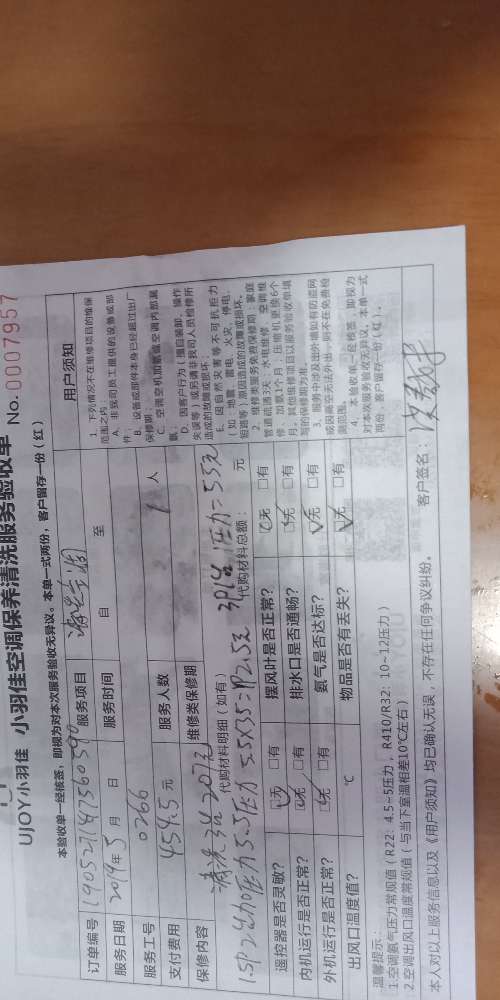 UJOY小羽佳 小羽佳空调保养清洗服务验收单 No.0007957
本验收单一经核签，即视为对本次服务验收无异议。本单一式两份，客户留存一份（红）
订单编号 服务项目
服务日期 2019年5月 日 服务时间 日 至
服务工号 0266
支付费用 454.5元 服务人数 1人
保修内容 清洗3台207元 维修类保修期
代购材料明细（如有） 代购材料总额： 元
1.5P2台加0压力5.5压力 5.5X35=192.5元 3P1台 压力=55元
遥控器是否灵敏? □无 □有 摆风叶是否正常? □无 □有
内机运行是否正常? □无 □有 排水口是否通畅? □无 □有
外机运行是否正常? □无 □有 氨气是否达标? □无 □有
出风口温度值? ℃ 物品是否有丢失? □无 □有
用户须知
1. 下列情况不在保修项目的维保
范围之内
A. 非我司员工提供的设备或部
件;
B. 设备或部件本身已经超过出厂
保修期
C. 空调空机加氟或空调内部漏
氨.
D. 因客户行为（擅自装卸、操作
失误等）或另请非我司人员检修所
造成的故障或损坏;
E. 因自然灾害等不可抗拒力
（如：地震、雷电、火灾、停电、
短路等）原因造成的故障或损坏.
2. 维修类服务免费保修期：家庭
管道疏通3天、水电维修、空调维
修、加氨1个月，压缩机更换6个
月，其他维修项目以服务验收单填
写的保修期为准.
3. 服务中涉及出外墙如有防盗网
或因高空无法外出，则不在免费检
测范围.
4. 本验收单一经核签，即视为
对本次服务验收无异议，本单一式
两份，客户留存一份（红）.
温馨提示：
1.空调氨气压力常规值（R22：4.5~5压力，R410/R32：10~12压力）
2.空调出风口温度常规值（与当下室温相差10℃左右）
本人对以上服务信息以及《用户须知》均已确认无误，不存在任何争议纠纷。 客户签名：